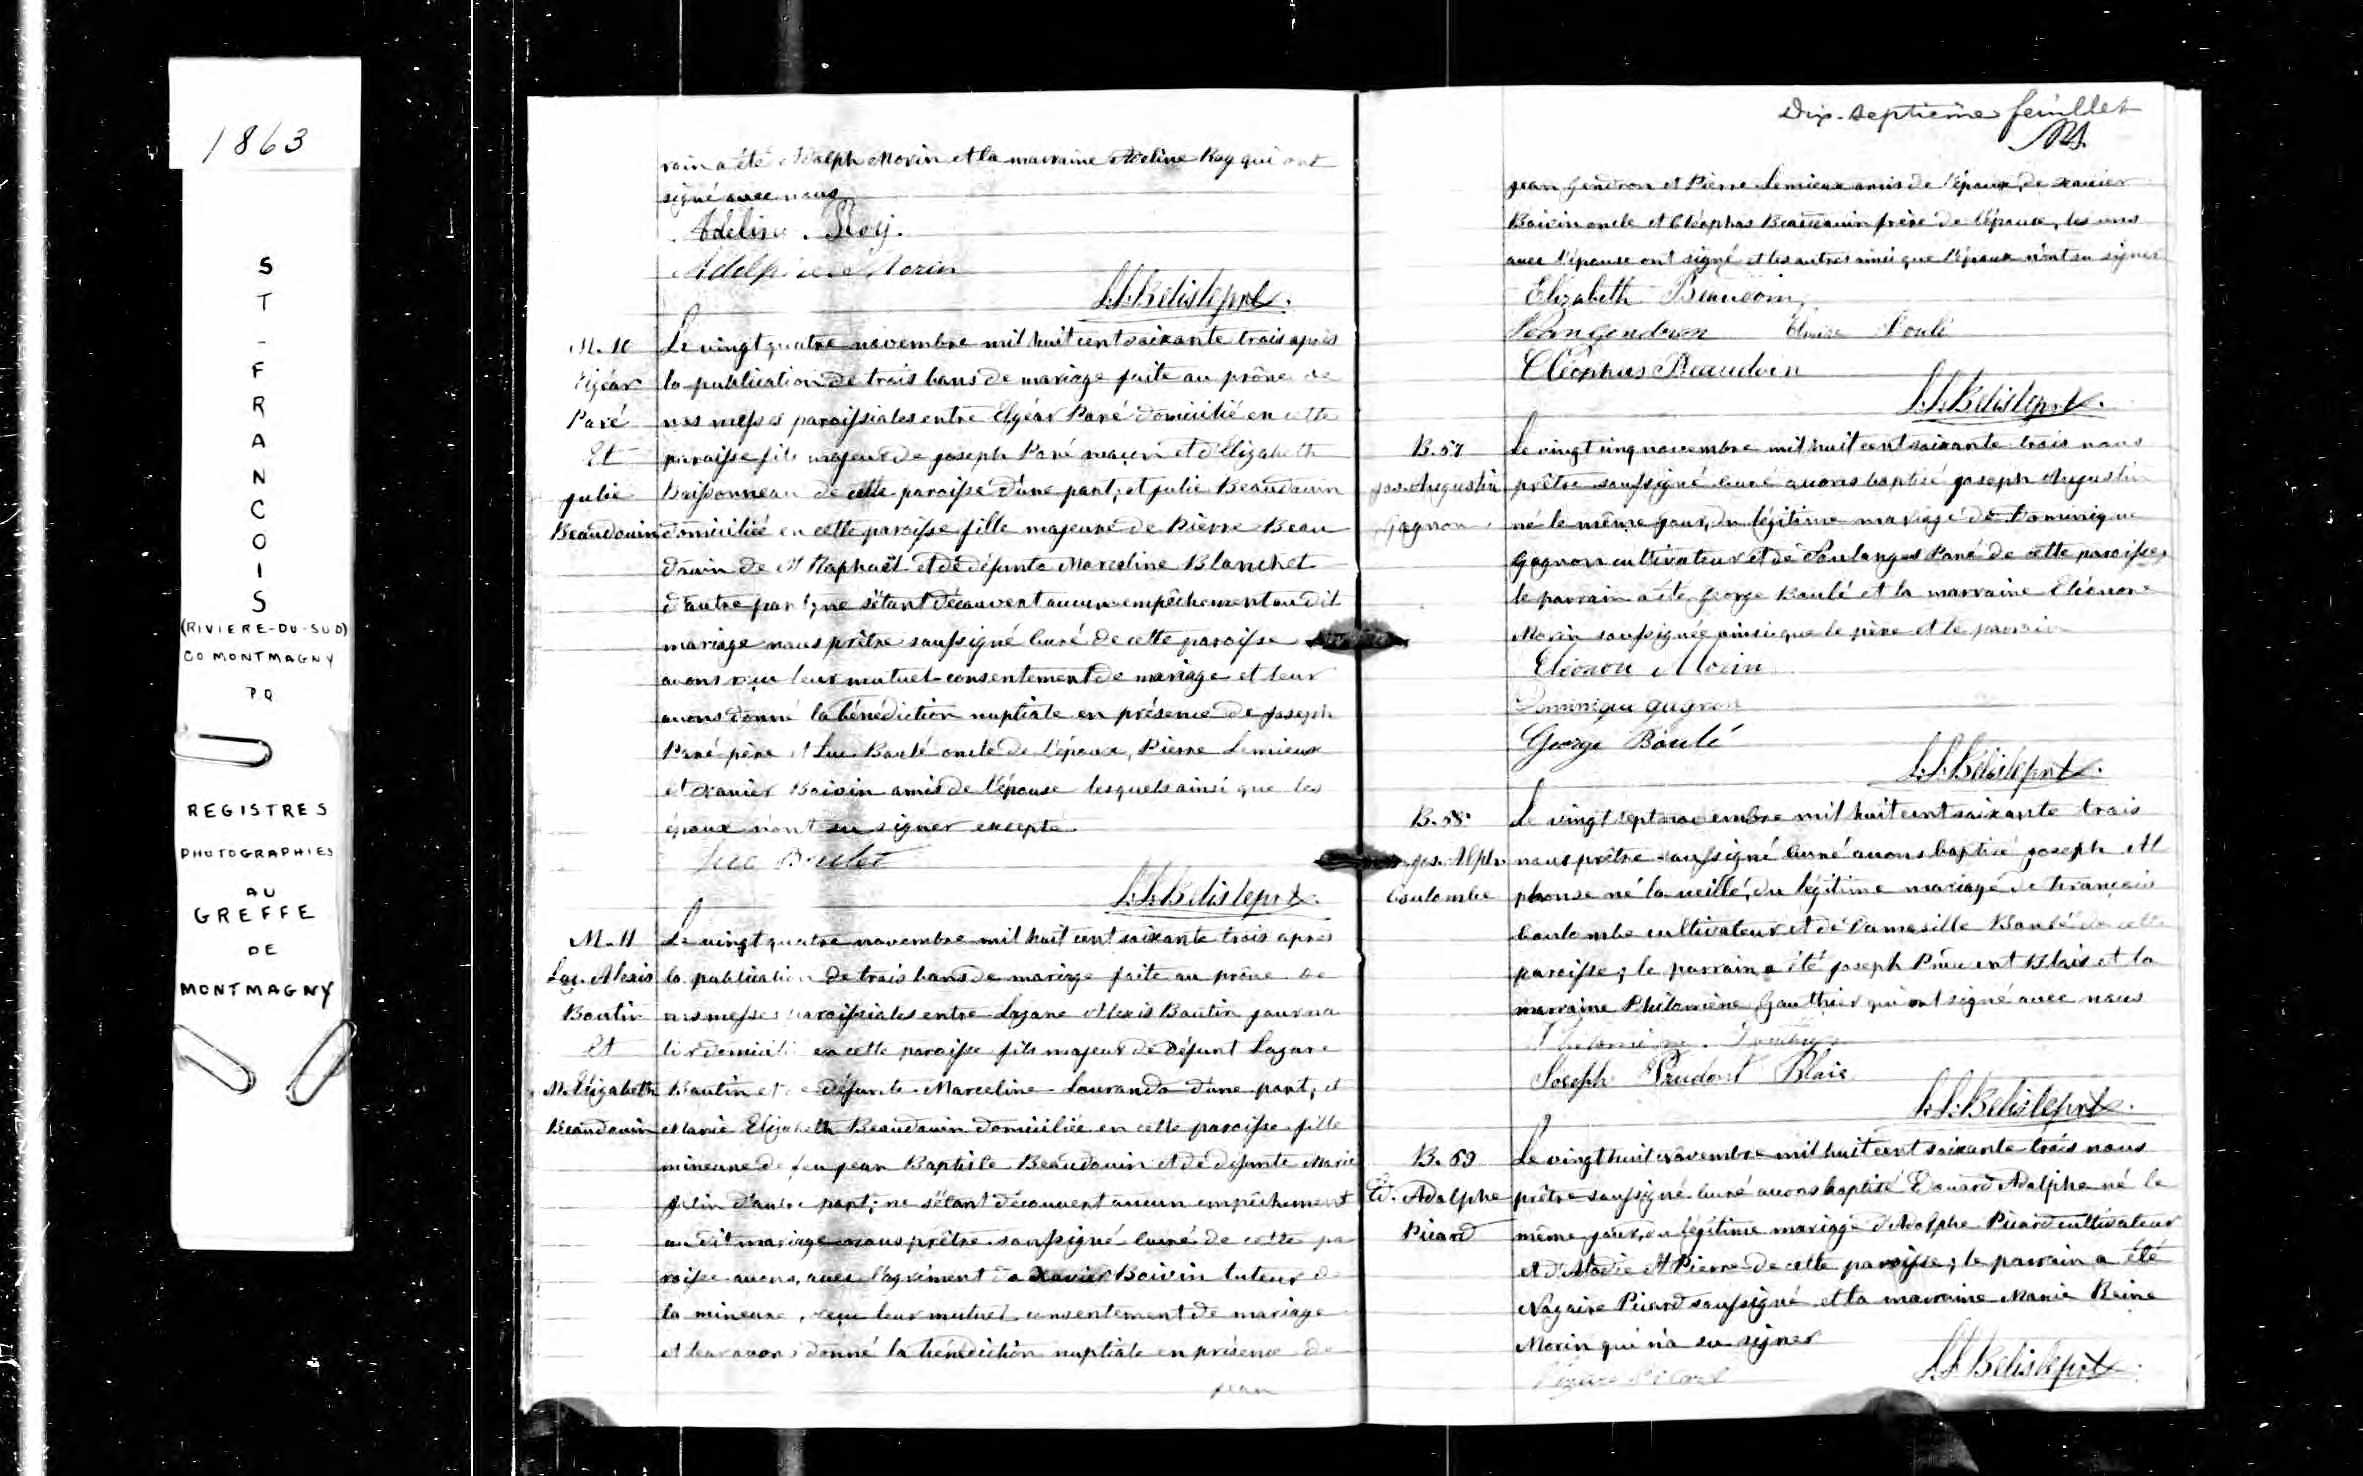 1863
S
T
-
F
R
A
N
C
O
I
S
(RIVIERE-DU-SUD)
CO MONTMAGNY
PQ
REGISTRES
PHOTOGRAPHIES
AU
GREFFE
DE
MONTMAGNY
rain a été Adolph Morin et la marraine Adeline Roy qui ont
signé avec nous
Adeline Roy.
Adolphe Morin
L.S. Belisle ptre.
M. 10
Elgéar
Paré
Et
Julie
Beaudouin
Le vingt quatre novembre mil huit cent soixante trois après
la publication de trois bans de mariage faite au prône de
nos messes paroissiales entre Elgéar Paré domicilié en cette
paroisse fils majeur de Joseph Paré maçon et d'Elizabeth
Brissonneau de cette paroisse d'une part; et Julie Beaudouin
domiciliée en cette paroisse fille majeure de Pierre Beau
douin de St Raphaël et de défunte Marceline Blanchet
d'autre part; ne s'étant découvert aucun empêchement au dit
mariage nous prêtre soussigné curé de cette paroisse
avons reçu leur mutuel consentement de mariage et leur
avons donné la bénédiction nuptiale en présence de Joseph
Paré père et Luc Boulé oncle de l'époux, Pierre Lemieux
et Xavier Boivin amis de l'épouse lesquels ainsi que les
époux n'ont su signer excepté
Luc Boulet
L.S. Belisle ptre.
M. 11
Laz. Alexis
Boutin
Et
M. Elizabeth
Beaudouin
Le vingt quatre novembre mil huit cent soixante trois après
la publication de trois bans de mariage faite au prône de
nos messes paroissiales entre Lazare Alexis Boutin journa
lier domicilié en cette paroisse fils majeur de défunt Lazare
Boutin et de défunte Marceline d'une part; et
Marie Elizabeth Beaudouin domiciliée en cette paroisse fille
mineure de feu Jean Baptiste Beaudouin et de défunte Marie
d'autre part; ne s'étant découvert aucun empêchement
au dit mariage nous prêtre soussigné curé de cette pa
roisse avons, avec l'agrément de Xavier Boivin tuteur de
la mineure, reçu leur mutuel consentement de mariage
et leur avons donné la bénédiction nuptiale en présence de
jean
Dix-septième feuillet
jean Gendron et Pierre Lemieux amis de l'époux, de xavier
Boivin oncle et Cléophas Beaudouin frère de l'épouse, les uns
avec l'épouse ont signé et les autres ainsi que l'époux n'ont su signer
Elizabeth Beaudoin
John Gendron Boulé
Cléophas Beaudoin
L.S. Belisle ptre.
B. 57
Jos. Augustin
Gagnon
Le vingt cinq novembre mil huit cent soixante trois nous
prêtre soussigné curé avons baptisé Joseph Augustin
né le même jour, du légitime mariage de Dominique
Gagnon cultivateur et de Soulanges Paré de cette paroisse,
le parrain a été George Boulé et la marraine Eléonore
Morin soussignée ainsi que le père et le parrain
Eléonore Morin
Dominique Gagnon
George Boulé
L.S. Belisle ptre.
B. 58
Jos. Alph.
Coulombe
Le vingt sept novembre mil huit cent soixante trois
nous prêtre soussigné curé avons baptisé Joseph Al
phonse né la veille, du légitime mariage de Francois
Coulombe cultivateur et de Damasille Boulé de cette
paroisse; le parrain a été Joseph Prudent Blais et la
marraine Philomène Gauthier qui ont signé avec nous
Philomène Gauthier
Joseph Prudent Blais
L.S. Belisle ptre.
B. 59
Ed. Adolphe
Picard
Le vingt huit novembre mil huit cent soixante trois nous
prêtre soussigné curé avons baptisé Edouard Adolphe né le
même jour, du légitime mariage d'Adolphe Picard cultivateur
et d'Alodie St Pierre de cette paroisse; le parrain a été
Nazaire Picard soussigné et la marraine Marie Reine
Morin qui n'a su signer
Nazaire Picard
L.S. Belisle ptre.